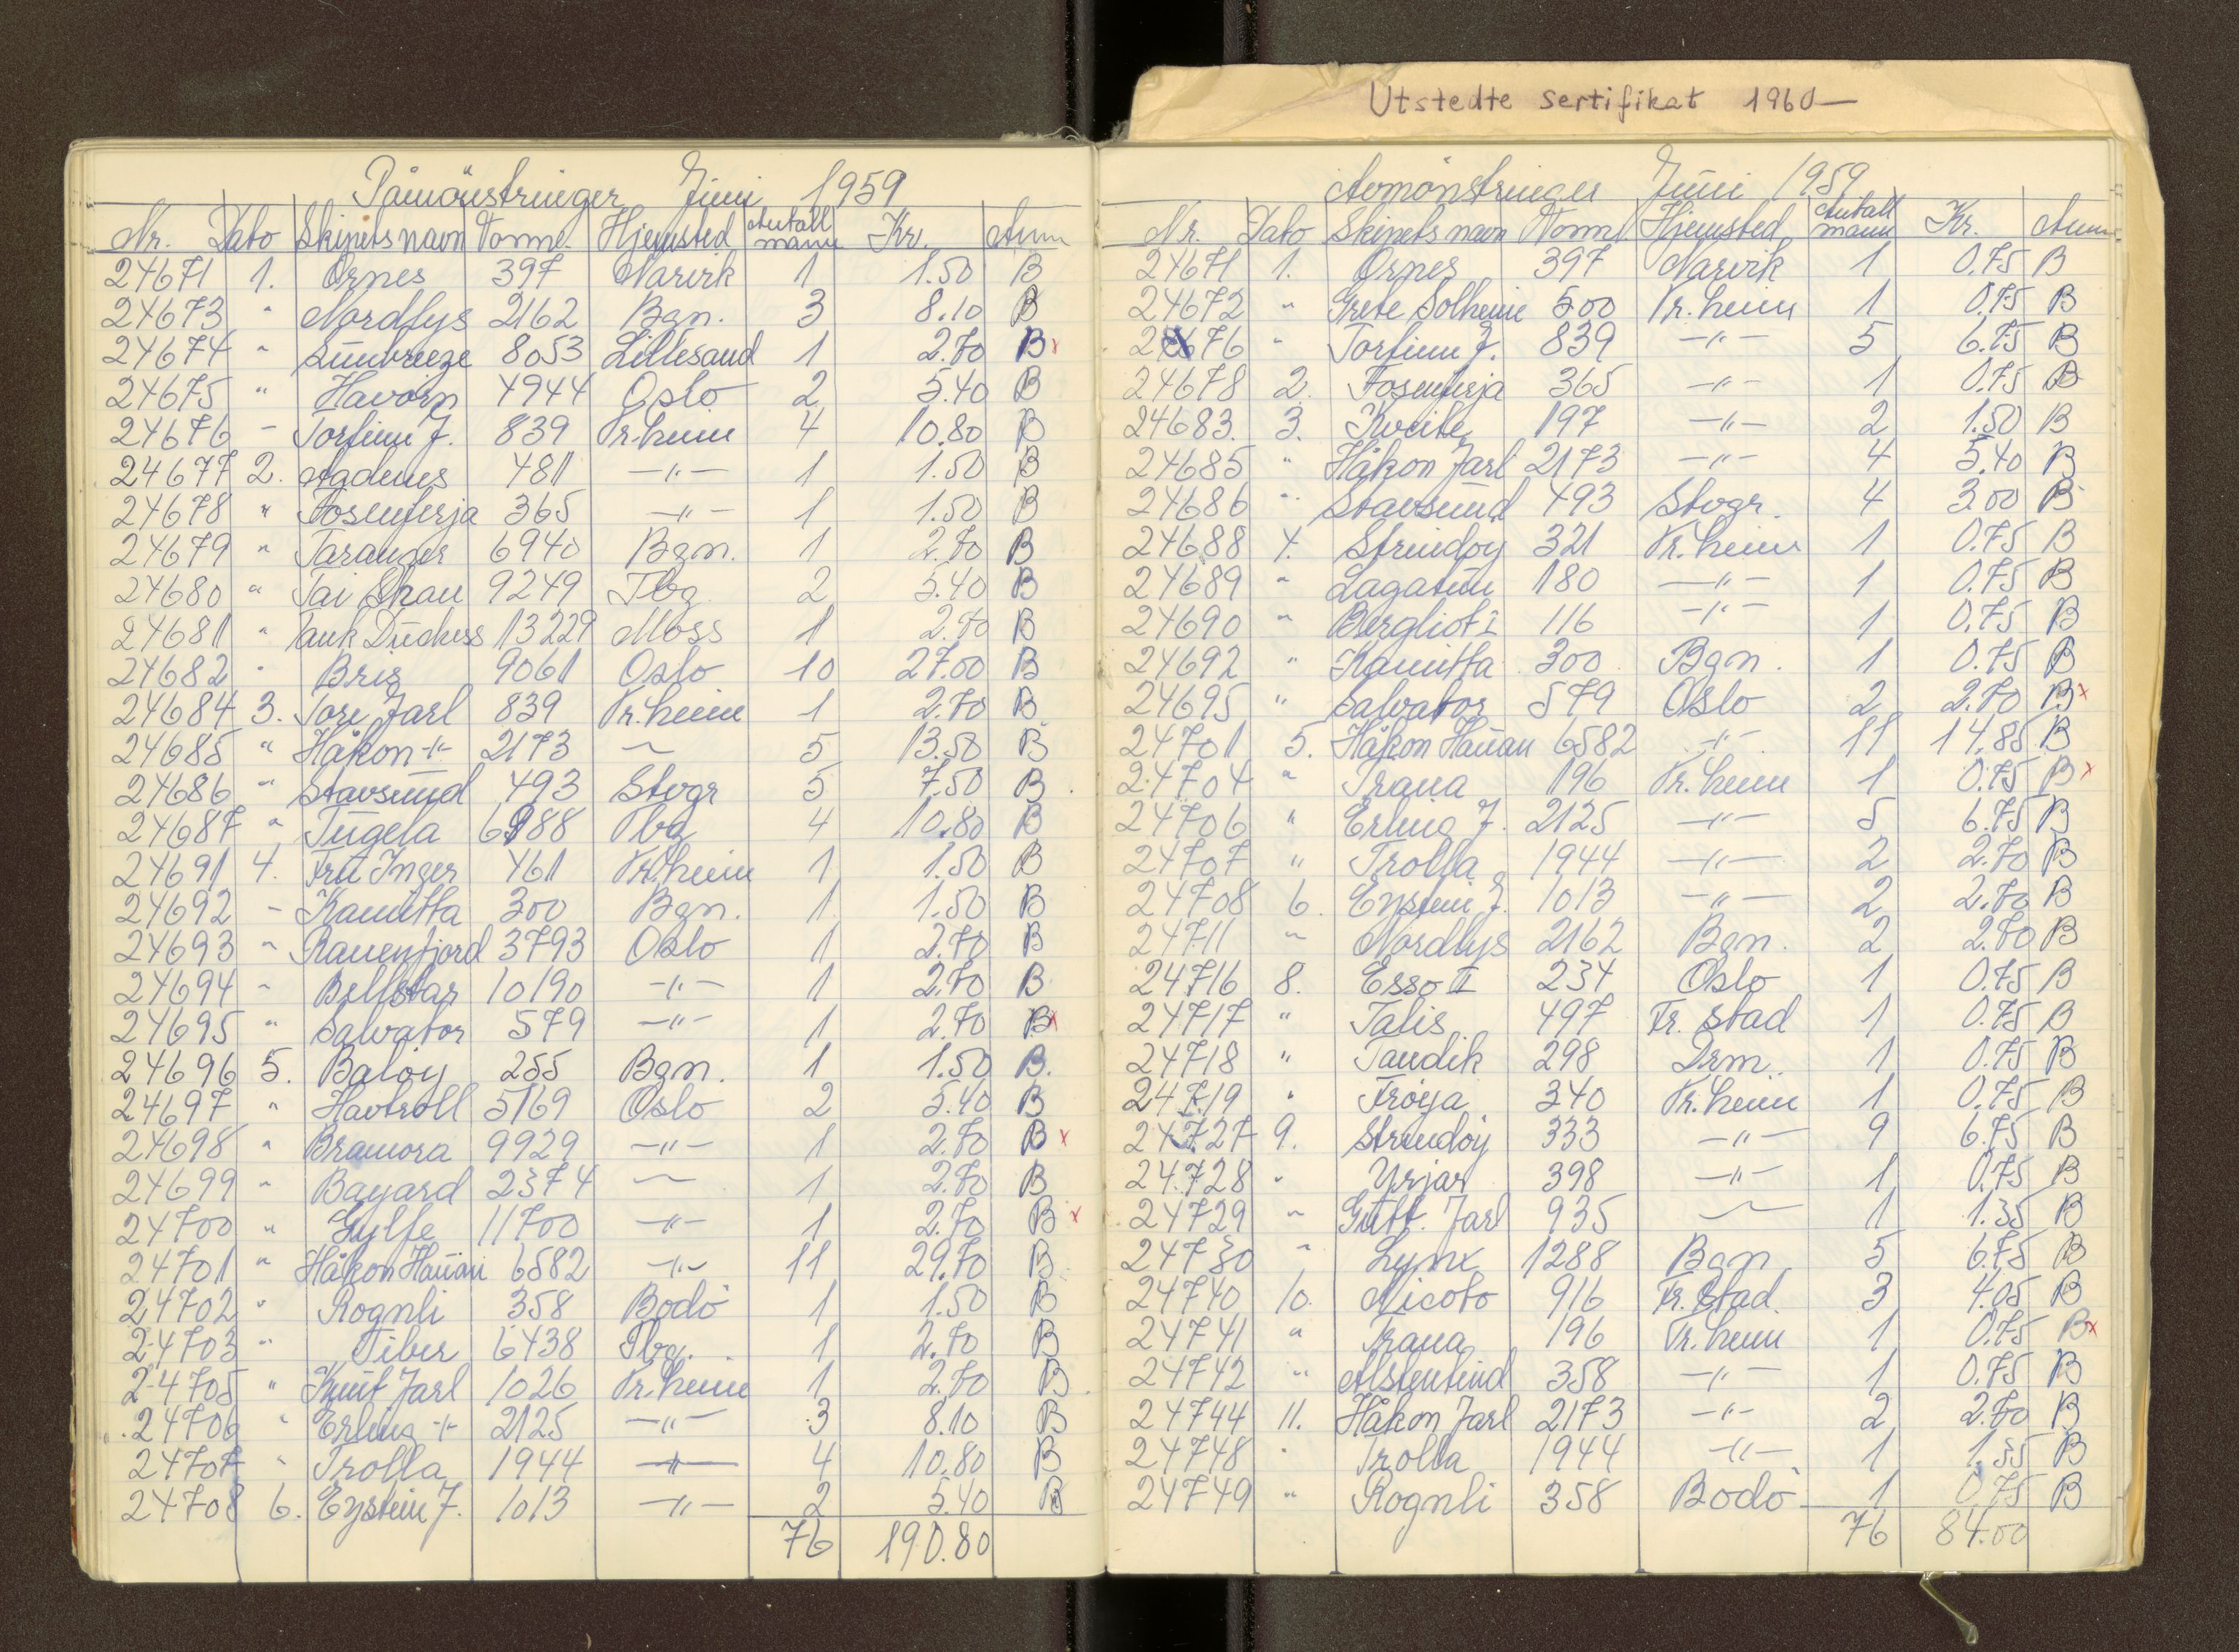 Utstedte sertifikat 1960—
Påmönstringer Juni 1959
Nr. Dato Skipets navn Tonn. Hjemsted Antall mann Kr. Anm
24671 1. Ornes 397 Narvik 1 1.50 B
24673 " Nordlys 2162 Bgn. 3 8.10 B
24674 " Sunbreeze 8053 Lillesand 1 2.70 B x
24675 " Havörn 4944 Oslo 2 5.40 B
24676 - Torfinn J. 839 Tr.heim 4 10.80 B
24677 2. Agdenes 481 —"— 1 1.50 B
24678 " Fosenferja 365 —"— 1 1.50 B
24679 " Taranger 6940 Bgn. 1 2.70 B
24680 " Tai Shan 9249 Tbg 2 5.40 B
24681 " Tank Duchess 13229 Moss 1 2.70 B
24682 " Bris 9061 Oslo 10 27.00 B
24684 3. Tore Jarl 839 Tr.heim 1 2.70 B
24685 " Håkon -"- 2173 — 5 13.50 B
24686 " Stavsund 493 Stvgr 5 7.50 B
24687 " Tugela 6988 Tbg 4 10.80 B
24691 4. Fru Inger 461 Tr.heim 1 1.50 B
24692 - Kamitta 300 Bgn. 1 1.50 B
24693 " Ravenfjord 3793 Oslo 1 2.70 B
24694 " Bellstar 10190 —"— 1 2.70 B
24695 " Salvator 579 —"— 1 2.70 B x
24696 5. Baloy 255 Bgn. 1 1.50 B.
24697 " Havtroll 5169 Oslo 2 5.40 B
24698 " Bramora 9929 —"— 1 2.70 B x
24699 " Bayard 2374 — 1 2.70 B
24700 " Gylfe 11700 —"— 1 2.70 B x
24701 " Håkon Hauan 6582 —"— 11 29.70 B
24702 " Rognli 358 Bodö 1 1.50 B
24703 " Tiber 6438 Tbg. 1 2.70 B
24705 " Knut Jarl 1026 Tr.heim 1 2.70 B
24706 " Erling -"- 2125 —"— 3 8.10 B
24707 " Trolla 1944 —"— 4 10.80 B
24708 6. Eystein J. 1013 —"— 2 5.40 B
76 190.80
Avmönstringer Juni 1959
Nr. Dato Skipets navn Tonn. Hjemsted Antall mann Kr. Anm.
24671 1. Ornes 397 Narvik 1 0.75 B
24672 " Grete Solheim 500 Tr.heim 1 0.75 B
24676 " Torfinn J. 839 —"— 5 6.75 B
24678 2. Fosenferja 365 —"— 1 0.75 B
24683. 3. Kveite 197 —"— 2 1.50 B
24685 " Håkon Jarl 2173 —"— 4 5.40 B
24686 " Stavsund 493 Stvgr. 4 3.00 B
24688 4. Strindöy 321 Tr.heim 1 0.75 B
24689 " Lagatun 180 —"— 1 0.75 B
24690 " Bergliot I 116 —"— 1 0.75 B
24692 " Kamitta 300 Bgn. 1 0.75 B
24695 " Salvator 579 Oslo 2 2.70 B x
24701 5. Håkon Hauan 6582 —"— 11 14.85 B
24704 " Trana 196 Tr.heim 1 0.75 B x
24706 " Erling J. 2125 —"— 5 6.75 B
24707 " Trolla 1944 —"— 2 2.70 B
24708 6. Eystein J. 1013 —"— 2 2.70 B
24711 " Nordlys 2162 Bgn. 2 2.70 B
24716 8. Esso II 234 Oslo 1 0.75 B
24717 " Talis 497 Fr. stad 1 0.75 B
24718 " Tandik 298 Drm. 1 0.75 B
24719 " Fröya 340 Tr.heim 1 0.75 B
24727 9. Strindöy 333 —"— 9 6.75 B
24728 " Yrjar 398 —"— 1 0.75 B
24729 " Gutt. Jarl 935 — 1 1.35 B
24730 " Lynx 1288 Bgn 5 6.75 B
24740 10. Nicoto 916 Fr. stad. 3 4.05 B
24741 " Trana 196 Tr.heim 1 0.75 B x
24742 " Alstentind 358 —"— 1 0.75 B
24744 11. Håkon Jarl 2173 —"— 2 2.70 B
24748 " Trolla 1944 —"— 1 1.35 B
24749 " Rognli 358 Bodö 1 0.75 B
76 84.00